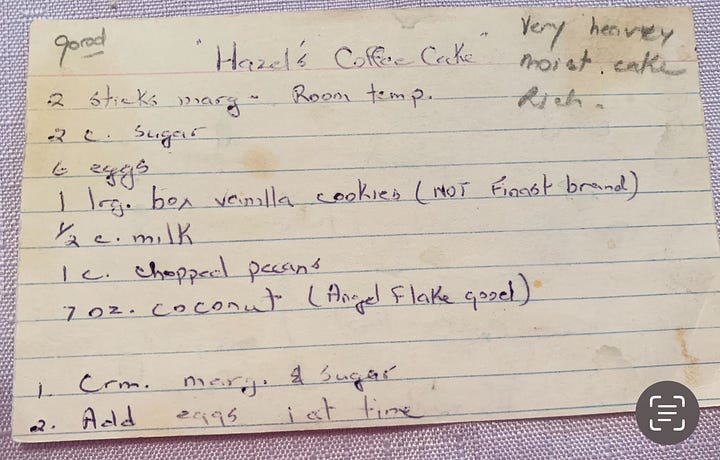 good
"Hazel's Coffee Cake"
Very heavey
moist. cake
Rich.
2 sticks marg - Room temp.
2 c. sugar
6 eggs
1 lrg. box vanilla cookies (NOT Finast brand)
1/2 c. milk
1 c. chopped pecans
7 oz. coconut (Angel Flake good)
1. Crm. marg. & sugar
2. Add eggs 1 at time